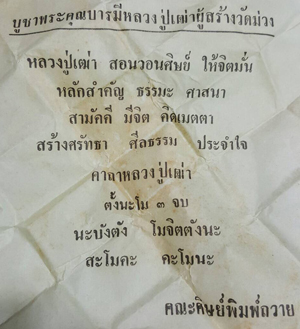 บูชาพระคุณบารมีหลวงปู่เฒ่าผู้สร้างวัดม่วง
หลวงปู่เฒ่า สอนวอนศิษย์ ให้จิตมั่น
หลักสำคัญ ธรรมะ ศาสนา
สามัคคี มีจิต คิดเมตตา
สร้างศรัทธา ศีลธรรม ประจำใจ
คาถาหลวงปู่เฒ่า
ตั้งนะโม ๓ จบ
นะบังตัง โมจิตตังนะ
สะโมคะ คะโมนะ
คณะศิษย์พิมพ์ถวาย